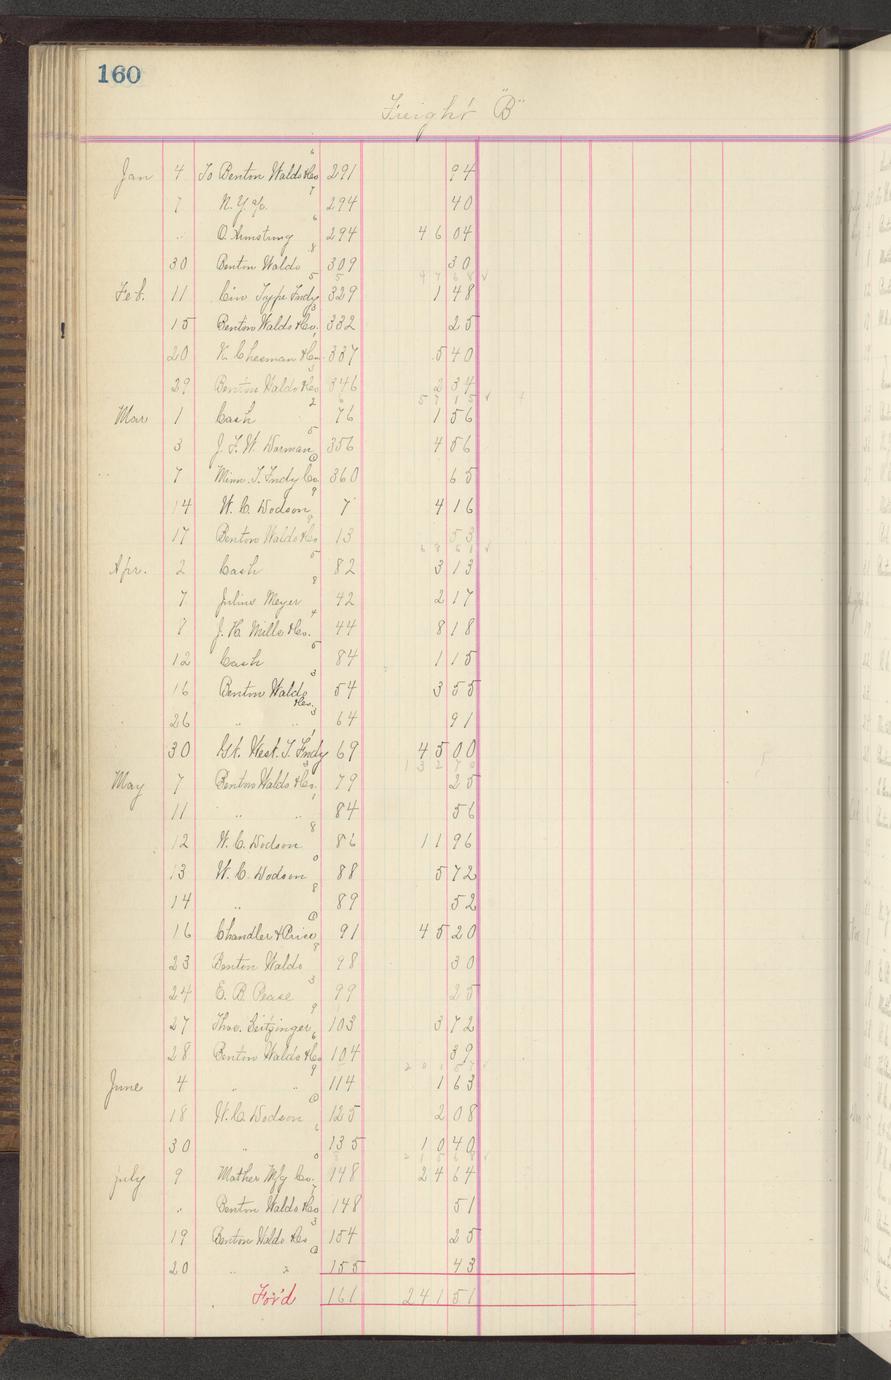 160
Freight "B"
Jan 4 To Benton Waldo & Co 6 291 94
7 N. Y. % 7 294 40
" O. Armstrong 6 294 46 04
30 Benton Waldo 8 309 30
47 68 ✓
Feb. 11 Cin Type Fndy 5 329 1 48
15 Benton Waldo & Co. 3 332 25
20 K. Chesman & Co. 337 5 40
29 Benton Waldo & Co 3 346 2 34
57 15 ✓
Mar 1 Cash 2 76 1 56
3 J. F. W. Dorman 5 356 4 56
7 Minn. T. Fndy Co. @ 360 65
14 W. C. Dodson 9 7 4 16
17 Benton Waldo & Co 8 13 53
68 61 ✓
Apr. 2 Cash 5 82 3 13
7 Julius Meyer 8 42 2 17
8 J. H. Mills & Co. 4 44 8 18
12 Cash 5 84 1 15
16 Benton Waldo & Co. 3 54 3 55
26 " " 3 64 91
30 Gt. West. T. Fndy 1 69 45 00
132 70
May 7 Benton Waldo & Co. 3 79 25
11 " " 1 84 56
12 W. C. Dodson 8 86 11 96
13 W. C. Dodson 0 88 5 72
14 " 8 89 52
16 Chandler & Price @ 91 45 20
23 Benton Waldo 8 98 30
24 E. B. Pease 3 99 25
27 Thos. Geitzinger 9 103 3 72
28 Benton Waldo & Co 6 104 39
201 57 ✓
June 4 " " 9 114 1 63
18 W. C. Dodson @ 125 2 08
30 " 6 135 10 40
215 68 ✓
July 9 Mather Mfg Co. 0 148 24 64
" Benton Waldo & Co 7 148 51
19 Benton Waldo & Co 3 154 25
20 " " @ 155 43
For'd 161 241 51